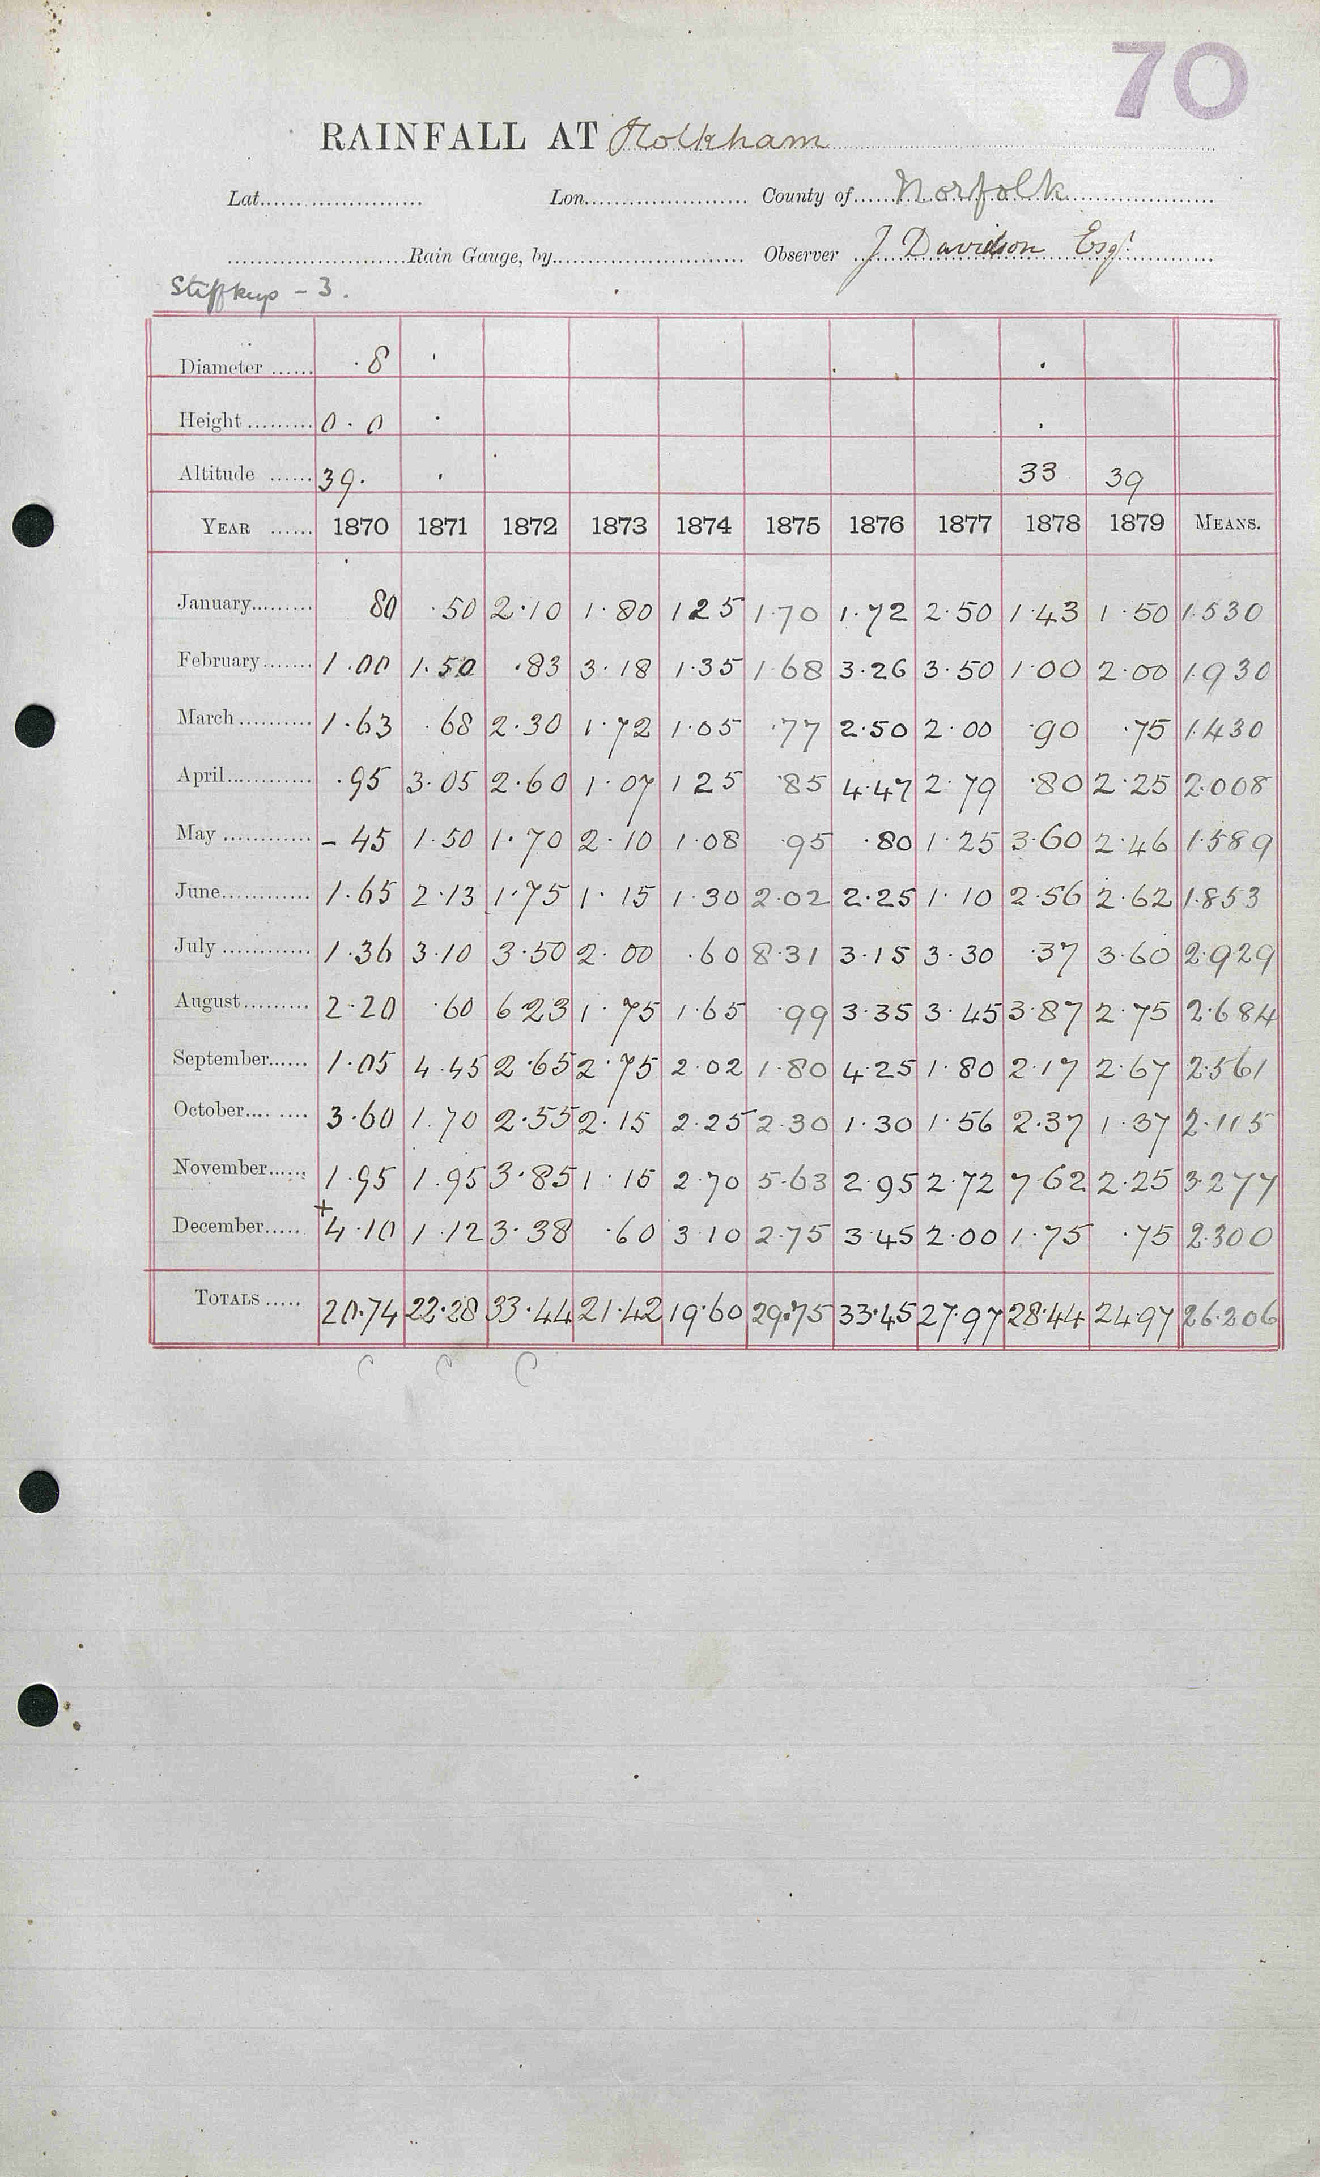 70
RAINFALL AT Holkham
Lat. Lon. County of Norfolk
Rain Gauge, by Observer J Davidson Esqr
Stiffkey - 3.
Diameter 8
Height 0.0
Altitude 39. 33 39
YEAR 1870 1871 1872 1873 1874 1875 1876 1877 1878 1879 MEANS.
January 80 .50 2.10 1.80 1 25 1.70 1.72 2.50 1.43 1.50 1.530
February 1.00 1.50 .83 3.18 1.35 1.68 3.26 3.50 1.00 2.00 1.930
March 1.63 .68 2.30 1.72 1.05 .77 2.50 2.00 .90 .75 1.430
April .95 3.05 2.60 1.07 1 25 .85 4.47 2.79 .80 2.25 2.008
May - 45 1.50 1.70 2.10 1.08 .95 .80 1.25 3.60 2.46 1.589
June 1.65 2.13 1.75 1.15 1.30 2.02 2.25 1.10 2.56 2.62 1.853
July 1.36 3.10 3.50 2.00 .60 8.31 3.15 3.30 .37 3.60 2.929
August 2.20 .60 6.23 1.75 1.65 .99 3.35 3.45 3.87 2.75 2.684
September 1.05 4.45 2.65 2.75 2.02 1.80 4.25 1.80 2.17 2.67 2.561
October 3.60 1.70 2.55 2.15 2.25 2.30 1.30 1.56 2.37 1.37 2.115
November 1.95 1.95 3.85 1.15 2.70 5.63 2.95 2.72 7.62 2.25 3.277
December +4.10 1.12 3.38 .60 3.10 2.75 3.45 2.00 1.75 .75 2.300
TOTALS 20.74 22.28 33.44 21.42 19.60 29.75 33.45 27.97 28.44 24.97 26.206
C C C